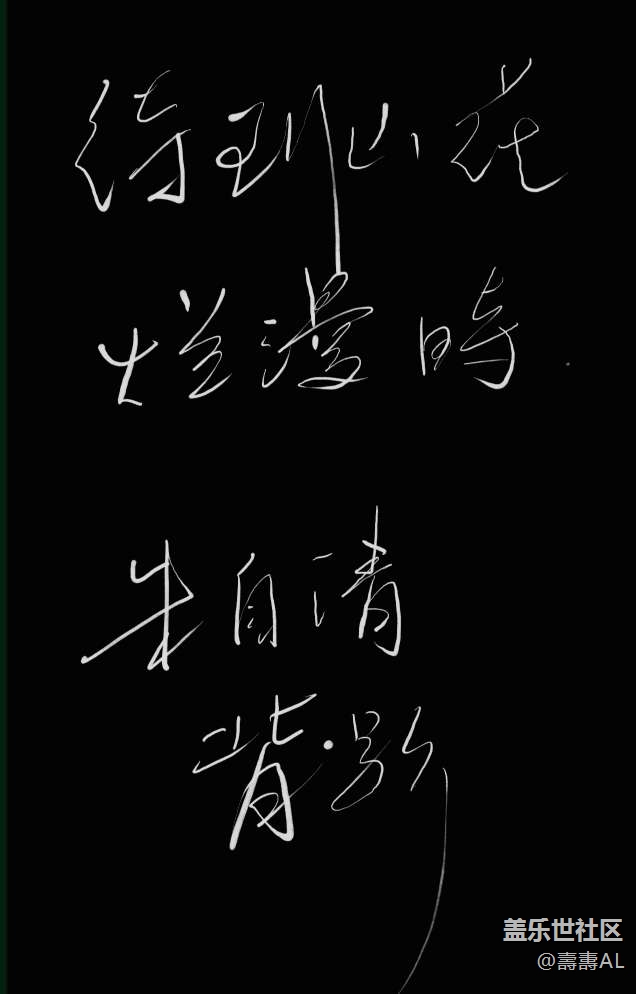 待到山花
烂漫時
朱自清
背影
盖乐世社区
@壽壽AL